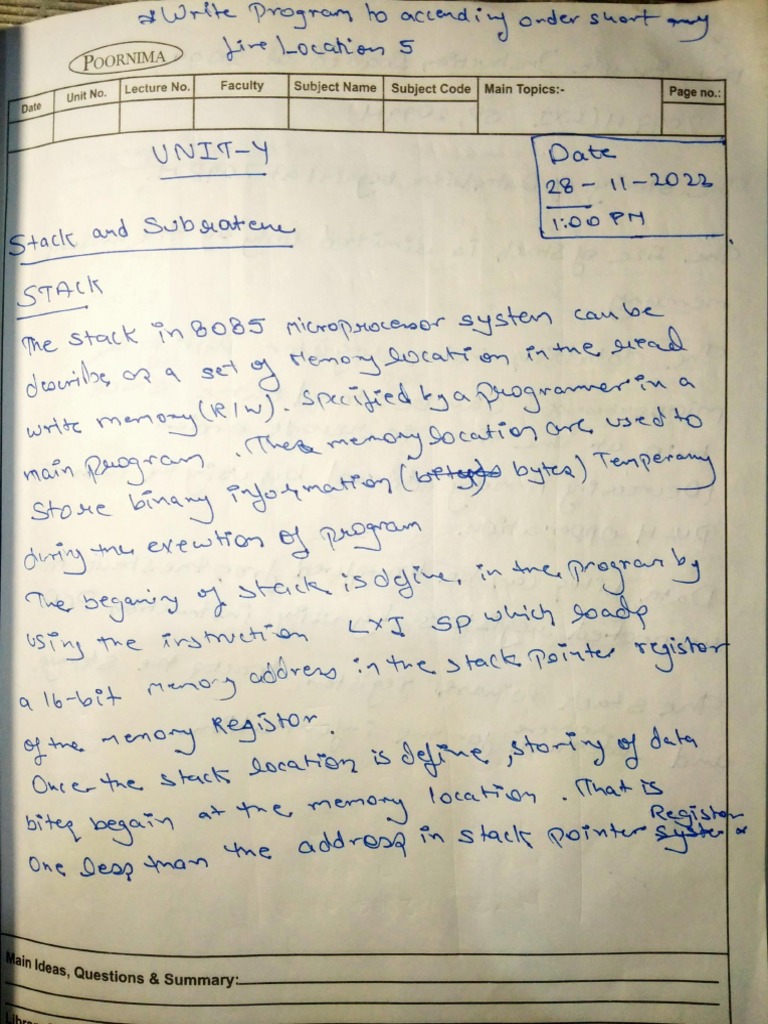 * Write Program to accending order short any
five Location 5
POORNIMA
Date Unit No. Lecture No. Faculty Subject Name Subject Code Main Topics:- Page no.:
UNIT-4
Date
28-11-2022
1:00 PM
Stack and
STACK
The stack in 8085 microprocessor system can be
describe as a set of Memory location in the read
write memory (R/W). Specified by a programmer in a
main program. These memory location are used to
Store binary information ( bytes) Temperary
during the execution of program
The beganing of stack is define, in the program by
using the instruction LXI SP which loads
a 16-bit memory address in the stack pointer register
of the memory Register.
Once the stack location is define, storing of data
bites begain at the memory location. That is
one less than the address in stack pointer Register
Main Ideas, Questions & Summary: